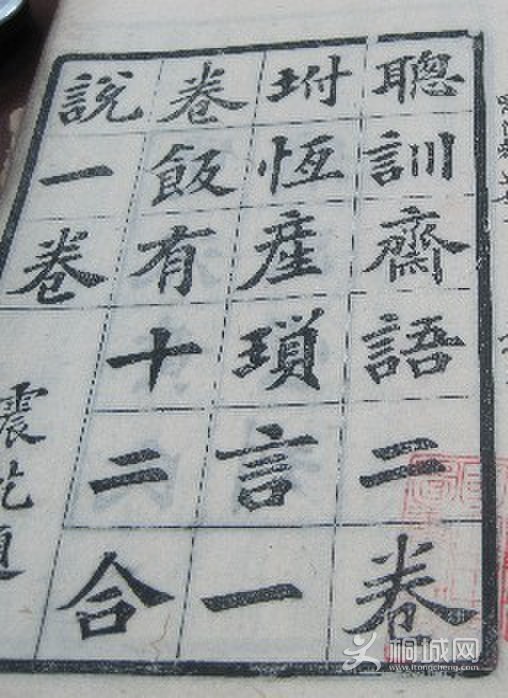 聰訓齋語二卷
坿恆產瑣言一
卷飯有十二合
說一卷
震題
桐城网
www.itongcheng.com